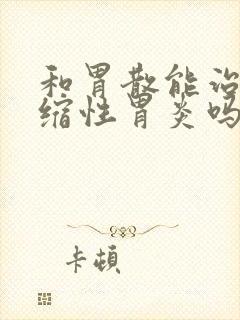 和胃散能治
缩性胃炎吗
卡顿